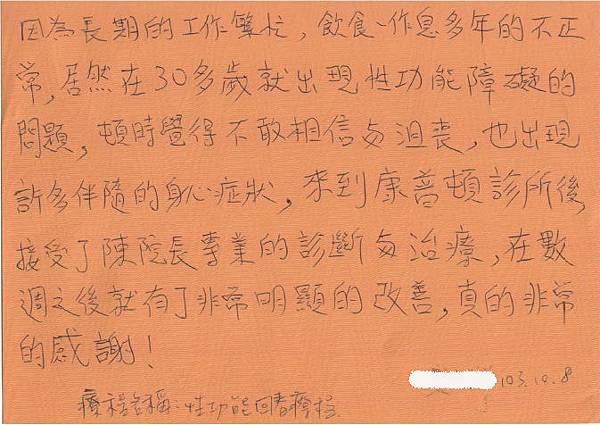 因為長期的工作繁忙，飲食、作息多年的不正
常，居然在30多歲就出現性功能障礙的
問題，頓時覺得不敢相信与沮喪，也出現
許多伴隨的身心症狀，來到康普頓診所後，
接受了陳院長專業的診斷与治療，在數
週之後就有了非常明顯的改善，真的非常
的感謝！
103.10.8
療程名稱：性功能回春療程